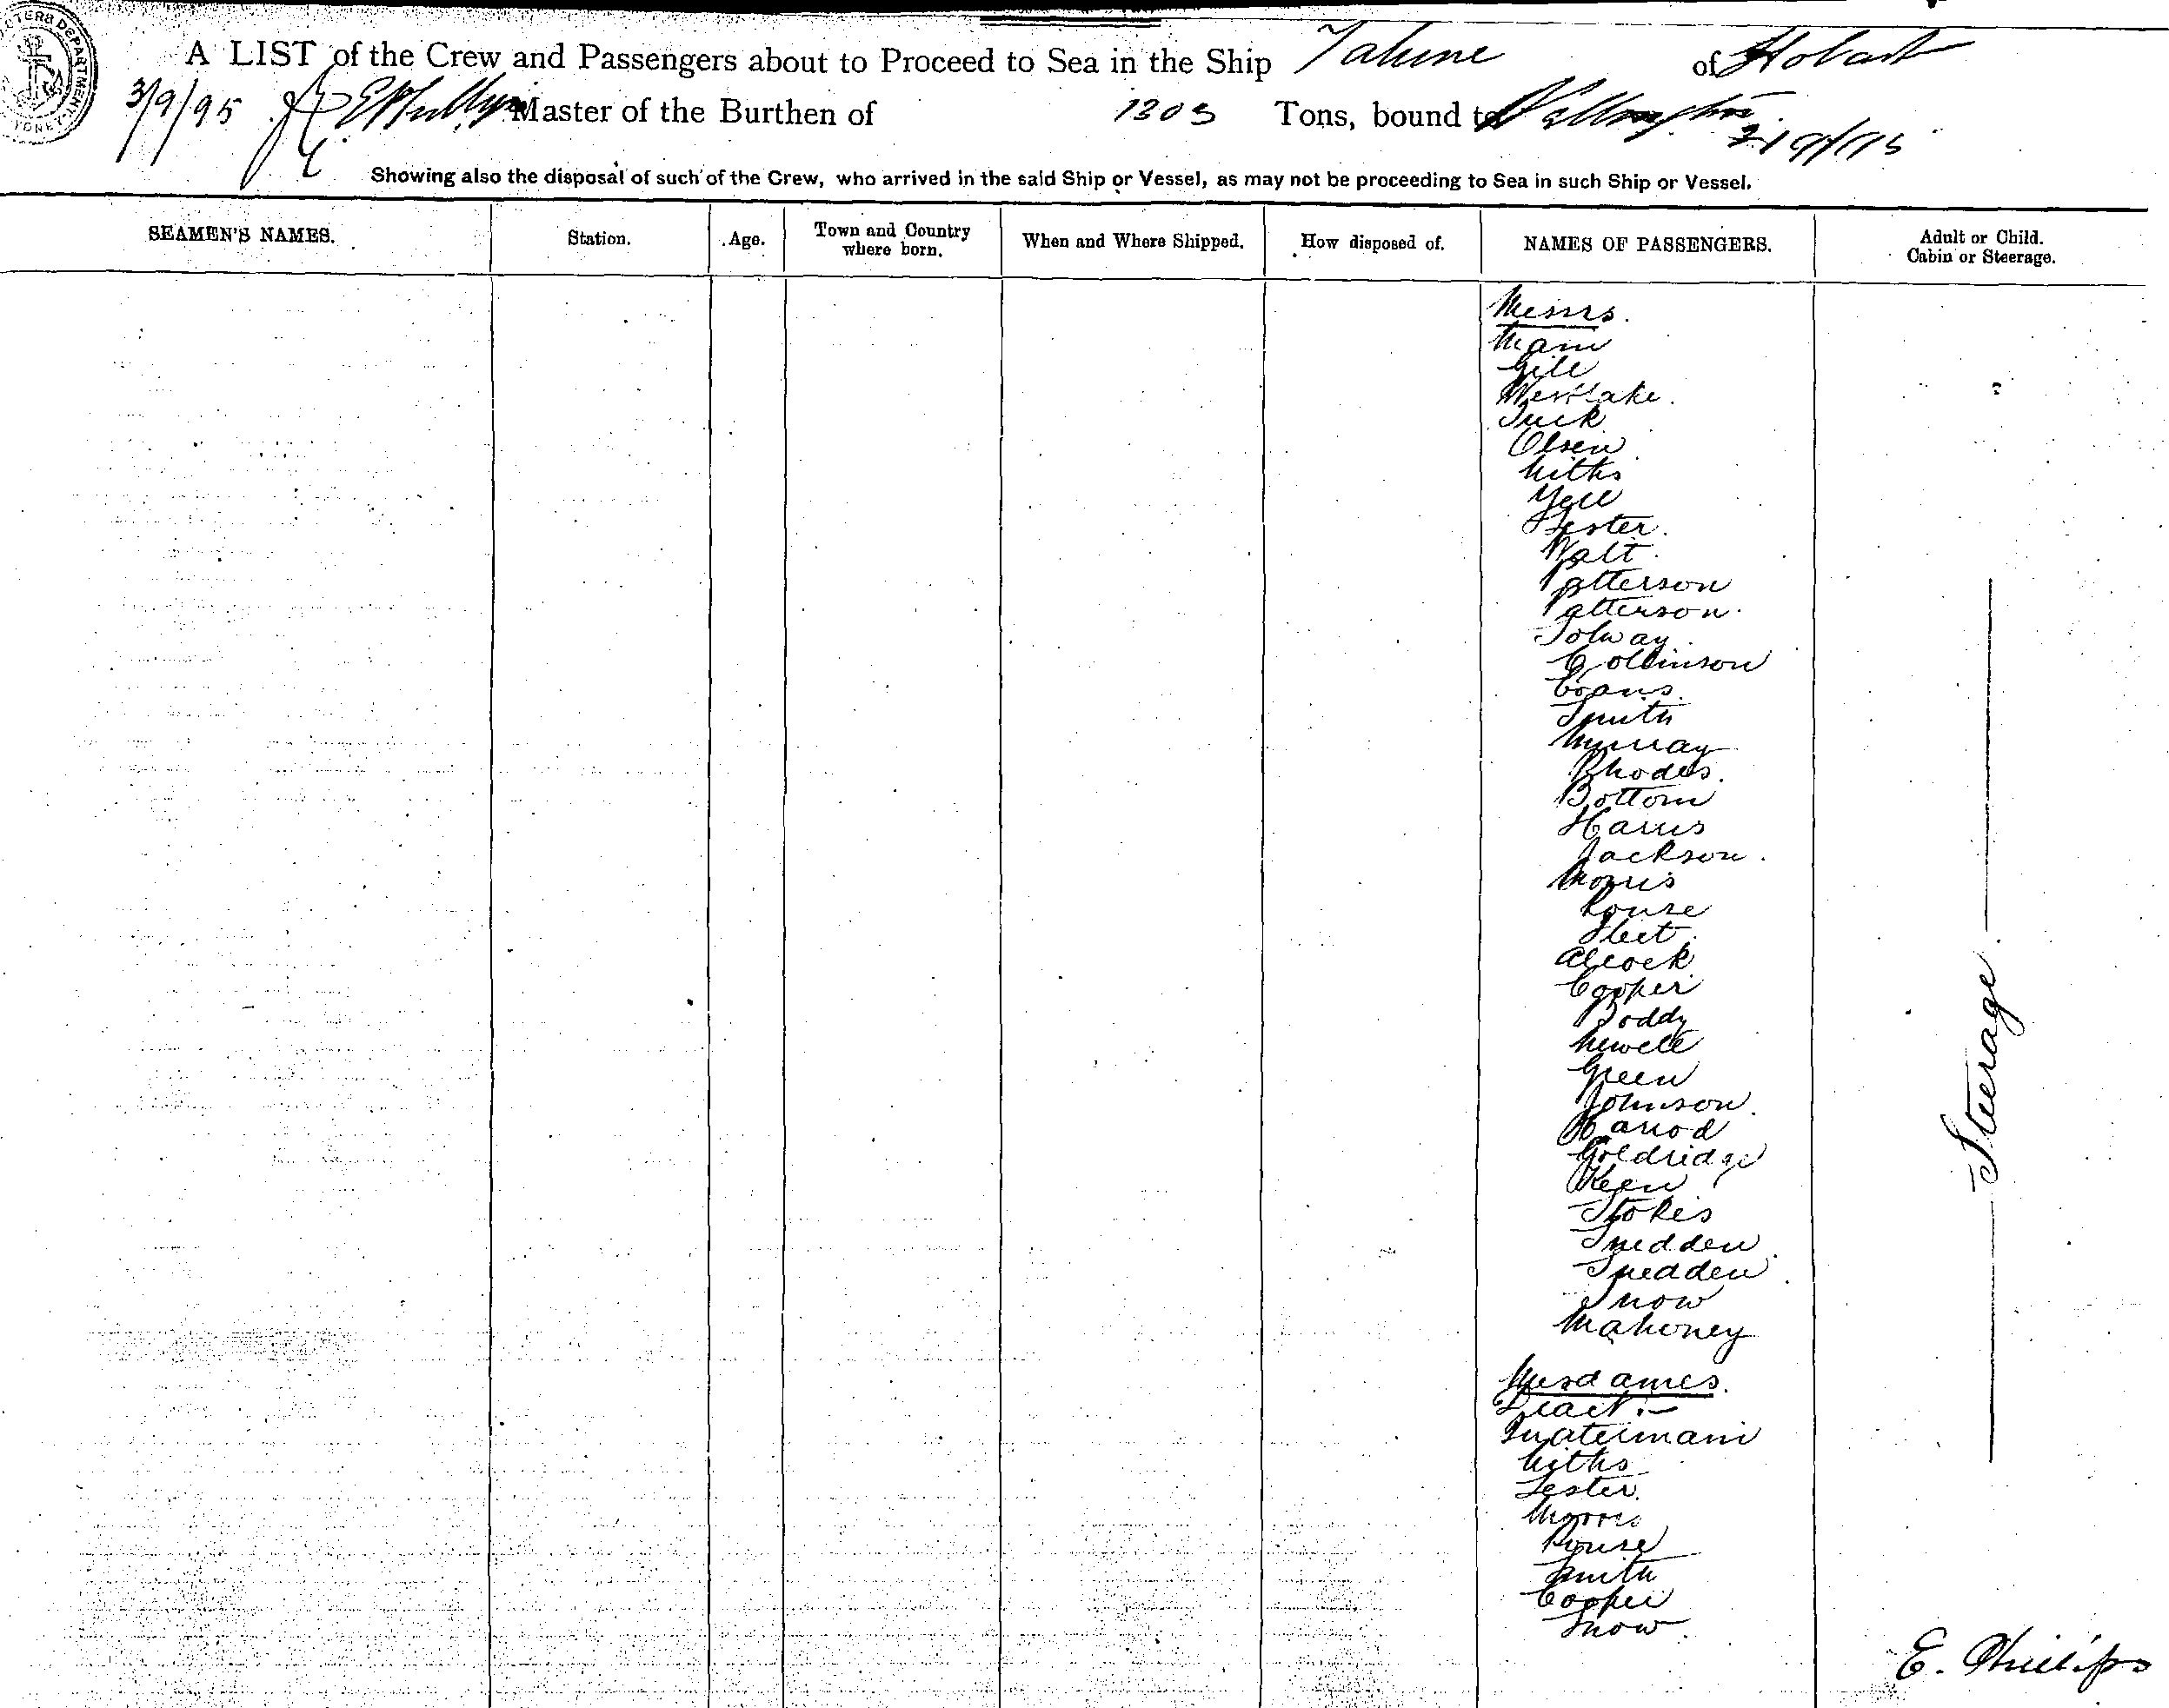 A LIST of the Crew and Passengers about to Proceed to Sea in the Ship Tahune of Hobart
3/9/95 Master of the Burthen of 1303 Tons, bound to Wellington
Showing also the disposal of such of the Crew, who arrived in the said Ship or Vessel, as may not be proceeding to Sea in such Ship or Vessel.
SEAMEN'S NAMES. Station. Age. Town and Country where born. When and Where Shipped. How disposed of. NAMES OF PASSENGERS. Adult or Child. Cabin or Steerage.
Messrs.
Mann
Gill
Westlake.
Tuck
Olsen
Yell
Lester.
Watt.
Patterson
Patterson.
Solway.
Collinson
Evans.
Smith
Murray
Rhodes.
Bottom
Harris
Jackson.
Morris
Rouse
Alcock
Cooper
Doddy
Newell
Green
Johnson.
Harrod
Goldridge
Keen
Stokes
Snedden.
Snedden.
Snow
Mahoney
Steerage
Mesdames.
Quatermain
Lester.
Morris
Rouse
Smith
Cooper
Snow.
E. Phillips